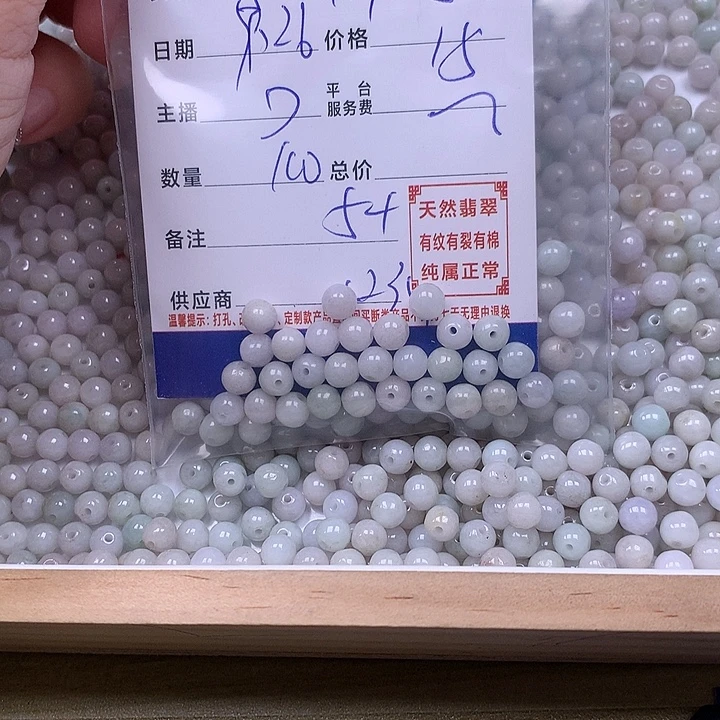 日期 326 价格 15
主播 7 平台服务费
数量 100 总价
54
备注
供应商 23
天然翡翠
有纹有裂有棉
纯属正常
温馨提示：打孔、
定制款产品
七天无理由退换